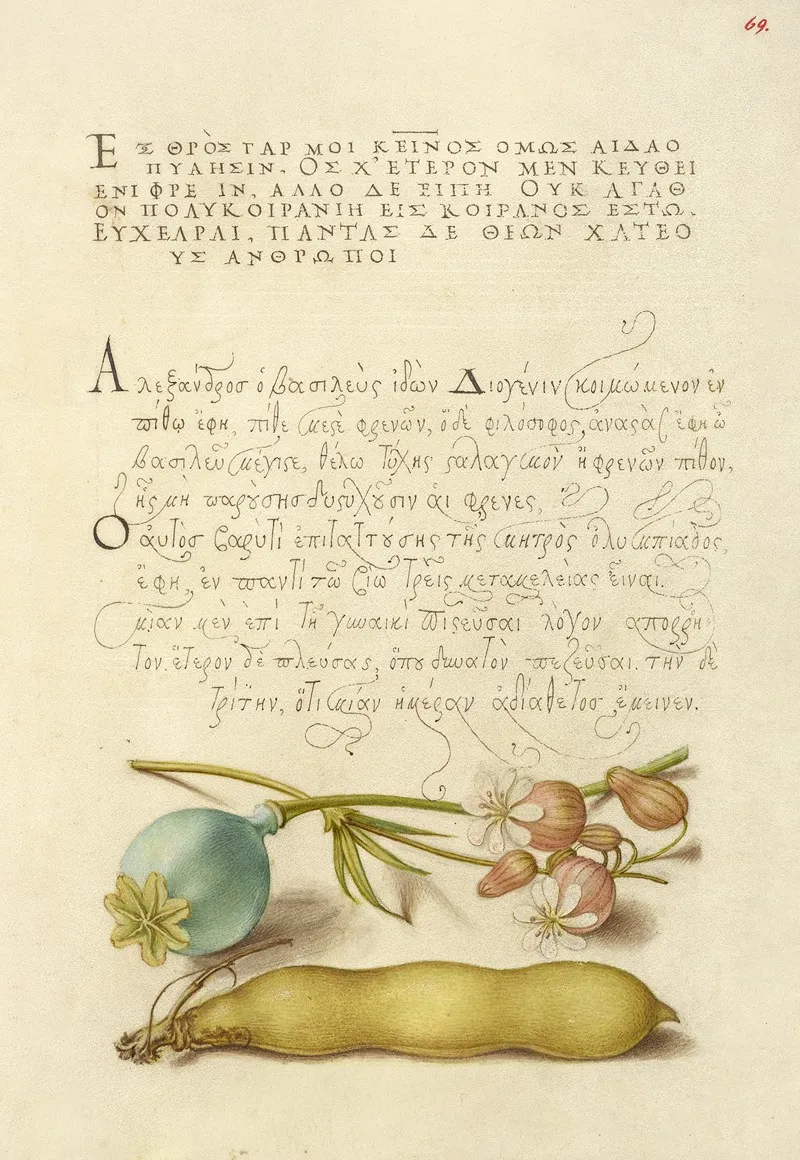 69.
ΕΣ ΘΡῸΣ ΓΑΡ ΜΟΙ ΚΕΙΝΟΣ ΟΜΩΣ ΑΙΔΑΟ
ΠΥΛΗΣΙΝ. ΟΣ Χ' ΕΤΕΡΟΝ ΜΕΝ ΚΕΥΘΕΙ
ΕΝΙ ΦΡΕ ΙΝ, ΑΛΛΟ ΔΕ ΕΙΠΗ ΟΥΚ ΑΓΑΘ
ΟΝ ΠΟΛΥΚΟΙΡΑΝΙΗ ΕΙΣ ΚΟΙΡΑΝΟΣ ΕΣΤΩ.
ΕΥΧΕΑΡΑΙ, ΠΑΝΤΑΣ ΔΕ ΘΕΩΝ ΧΑΤΕΟ
ΥΣ ΑΝΘΡΩΠΟΙ
Αλεξανδροσ ὁ βασιλεὺς ἰδὼν Διογένιν κοιμώμενον ἐν
πίθῳ ἔφη, πίθε μεςὲ φρενῶν, ὁ δὲ φιλόσοφος, ἀναςὰς ἔφη ὦ
βασιλεῦ μέγιςε, θέλω τύχης ςαλαγμὸν ἢ φρενῶν πίθον,
ἧς μὴ παρȣ́σης δυςυχȣσιν αἱ φρενες,
Ο αυτὸσ βαρὺ τι ἐπιταττȣσης τῆς μητρὸς ὀλυμπιάδος,
ἔφη, ἐν παντὶ τῷ βίῳ τρεῖς μεταμελείας εἶναι.
μίαν μὲν ἐπὶ τῇ γυναικὶ πιςεῦσαι λόγον απορρη
τον. ἕτερον δὲ πλεύσας, ὅπȣ δυνατὸν πεζεῦσαι. τὴν δὲ
τρίτην, ὅτι μίαν ἡμέραν ἀδιάθετοσ ἔμεινεν.